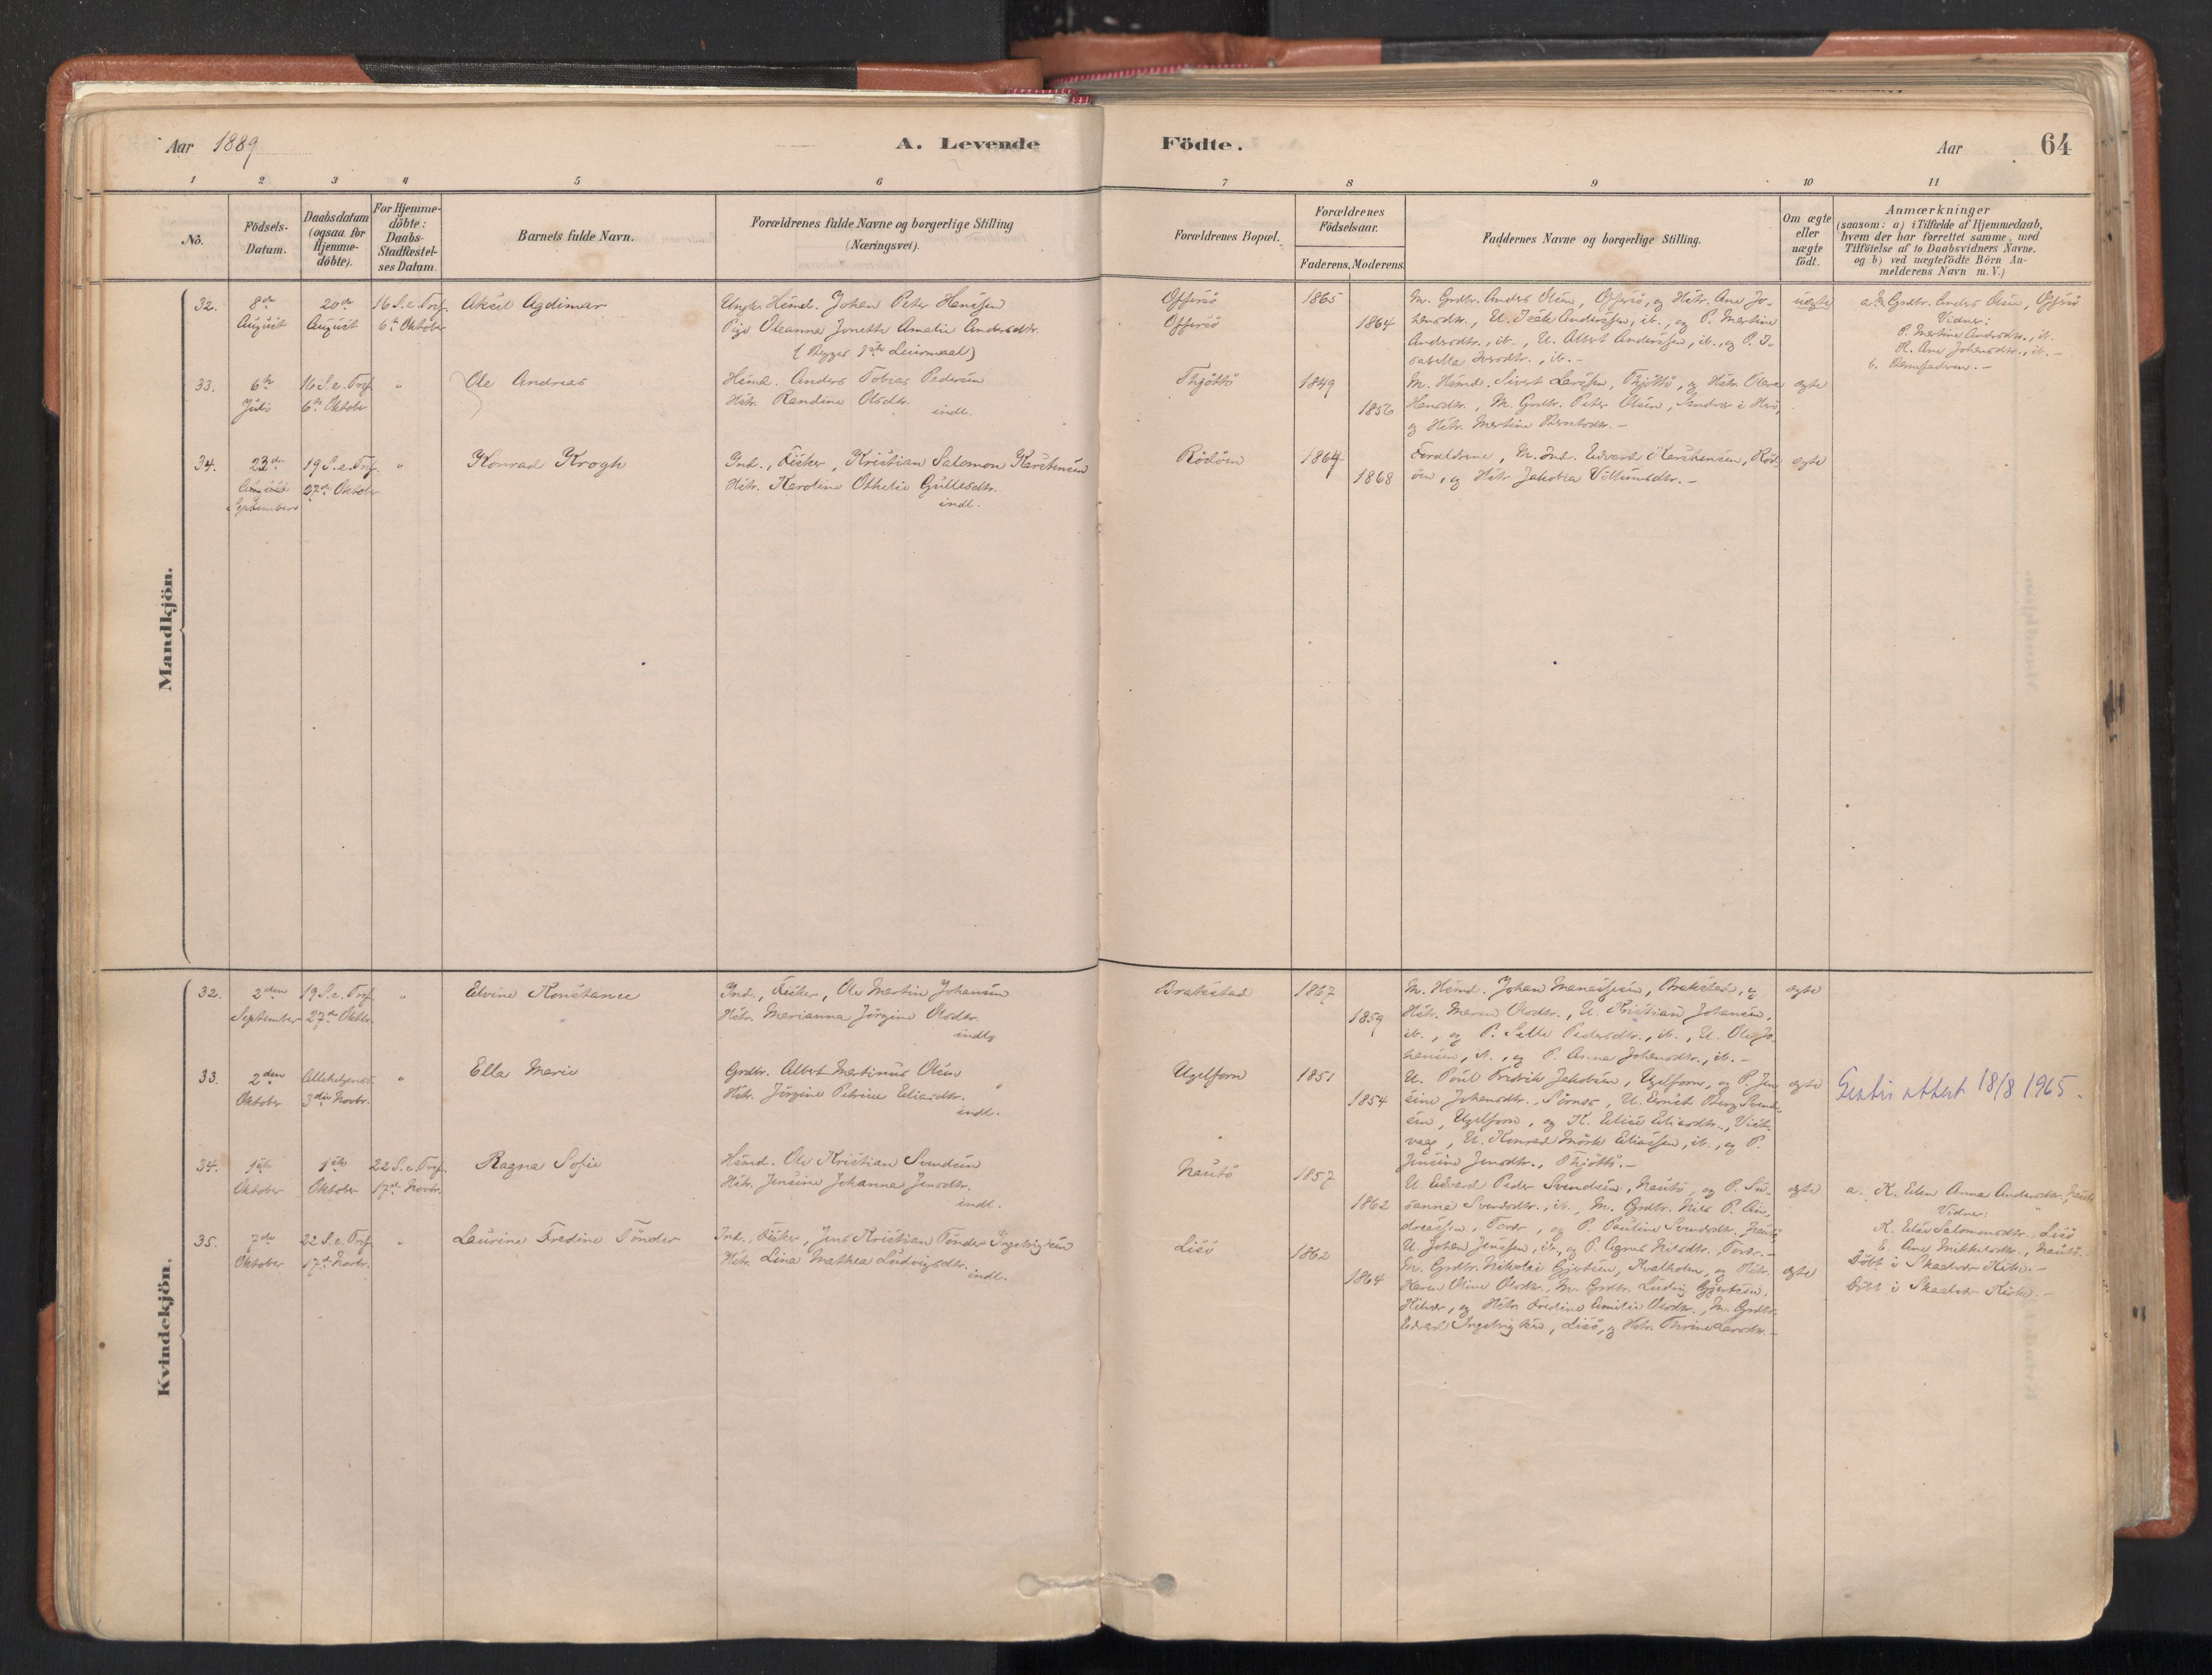 Aar 1889
A. Levende
Födte.
Aar
64
1 2 3 4 5 6 7 8 9 10 11
No.
Födsels-
Datum.
Daabsdatum
(ogsaa for
Hjemme-
döbte).
For Hjemme-
döbte:
Daabs-
Stadfæstel-
ses Datum.
Barnets fulde Navn.
Forældrenes fulde Navne og borgerlige Stilling
(Næringsvei).
Forældrenes Bopæl.
Forældrenes
Födselsaar.
Faderens, Moderens.
Faddernes Navne og borgerlige Stilling.
Om ægte
eller
uægte
födt.
Anmærkninger
(saasom: a) i Tilfælde af Hjemmedaab,
hvem der har forrettet samme, med
Tilföielse af to Daabsvidners Navne.
og b) ved uægtefödte Börn An-
melderens Navn m. V.)
Mandkjön.
32.
8de
August
20de
August
16 S. e. Tref.
6te Oktober
Aksel Agdimar
Ungk. Hmd. Johan Peter Hanssen
Pige Oleanna Jonette Amalie Andersdtr.
(Begges 1ste Leiermaal)
Offersö
Offersö
1865
1864
M. Grdbr. Anders Olsen, Offersö, og Hstr. Ane Jo-
hansdtr., U. Isak Anderssen, ib., og P. Martine
Andersdtr., ib., U. Albert Anderssen, ib., og P. I-
sabella Iversdtr., ib. -
uægte
a. M. Grdbr. Anders Olsen, Offersö
Vidner:
P. Martine Andersdtr., ib.
K. Ane Johansdtr., ib. -
b. Barnefaderen. -
33.
6te
Juli
16 S. e. Tref.
6te Oktober
"
Ole Andreas
Hmd. Anders Tobias Pedersen
Hstr. Randine Olsdtr.
indl.
Thjöttö
1849
1856
M. Hmd. Sivert Larssen, Thjöttö, og Hstr. Olava
Hansdtr., M. Grdbr. Peter Olsen, Sandvær i Herö,
og Hstr. Martine Berntsdtr. -
ægte
34.
23de
August
September
19 S. e. Tref.
27de Oktober
"
Konrad Krogh
Ind., Fisker, Kristian Salomon Karstensen
Hstr. Karoline Othelie Gullesdtr.
indl.
Rödöen
1864
1868
Forældrene, M. Ind. Edvard Karstensen, Röd-
öen, og Hstr. Jakobia Villumsdtr. -
ægte
Kvindekjön.
32.
2den
September
19 S. e. Tref.
27de Oktbr.
"
Elvine Konstance
Ind., Fisker, Ole Martin Johansen
Hstr. Marianna Jörgine Olsdtr.
indl.
Brakstad
1867
1859
M. Hmd. Johan Manassesen, Brakstad, og
Hstr. Maren Olsdtr., U. Kristian Johansen,
ib., og P. Sille Pedersdtr., ib., U. Ole Jo-
hansen, ib., og P. Anna Johansdtr., ib. -
ægte
33.
2den
Oktober
Allehelgensd.
3die Novbr.
"
Ella Marie
Grdbr. Albert Martinus Olsen
Hstr. Jörgine Petrine Eliasdtr.
indl.
Ugelforn
1851
1854
U. Poul Fredrik Jakobsen, Ugelforn, og P. Jen-
sine Johansdtr., Sörnes, U. Ernst Berg Svend-
sen, Ugelforn, og K. Elise Eliasdtr., Vist-
vaag, U. Konrad Mörk Eliassen, ib., og P.
Jensine Jensdtr., Thjöttö. -
ægte
Gratis attest 18/8 1965.
34.
1ste
Oktober
1ste
Oktober
22 S. e. Tref.
17de Novbr.
Ragna Sofie
Hmd. Ole Kristian Svendsen
Hstr. Jensine Johanna Jensdtr.
indl.
Nautö
1857
1862
U. Edvard Peder Svendsen, Nautö, og P. Su-
sanna Svendsdtr., ib., M. Grdbr. Nils P. An-
dreassen, Tovær, og P. Pauline Svendsdtr., Nautö
U. Johan Jenssen, ib., og P. Agnes Nilsdtr., Tovær. -
ægte
a. K. Elen Anna Andersdtr., Nautö
Vidner:
K. Elen Salomonsdtr. Lisö
E. Ane Mikkelsdtr., Nautö. -
Döbt i Skaalvær Kirke. -
35.
7de
Oktober
22 S. e. Tref.
17de Novbr.
"
Laurine Fredine Tönder
Ind., Fisker, Jens Kristian Tönder Ingebrigtsen
Hstr. Lina Mathea Ludvigsdtr.
indl.
Lisö
1862
1864
M. Grdbr. Nikolai Gjertsen, Kvalholm, og Hstr.
Karen Oline Olsdtr., M. Grdbr. Ludvig Gjertsen,
Hilvær, og Hstr. Fredine Emilie Olsdtr., M. Grdbr.
Edvard Ingebrigtsen, Lisö, og Hstr. Thrine Larsdtr. -
ægte
Döbt i Skaalvær Kirke. -